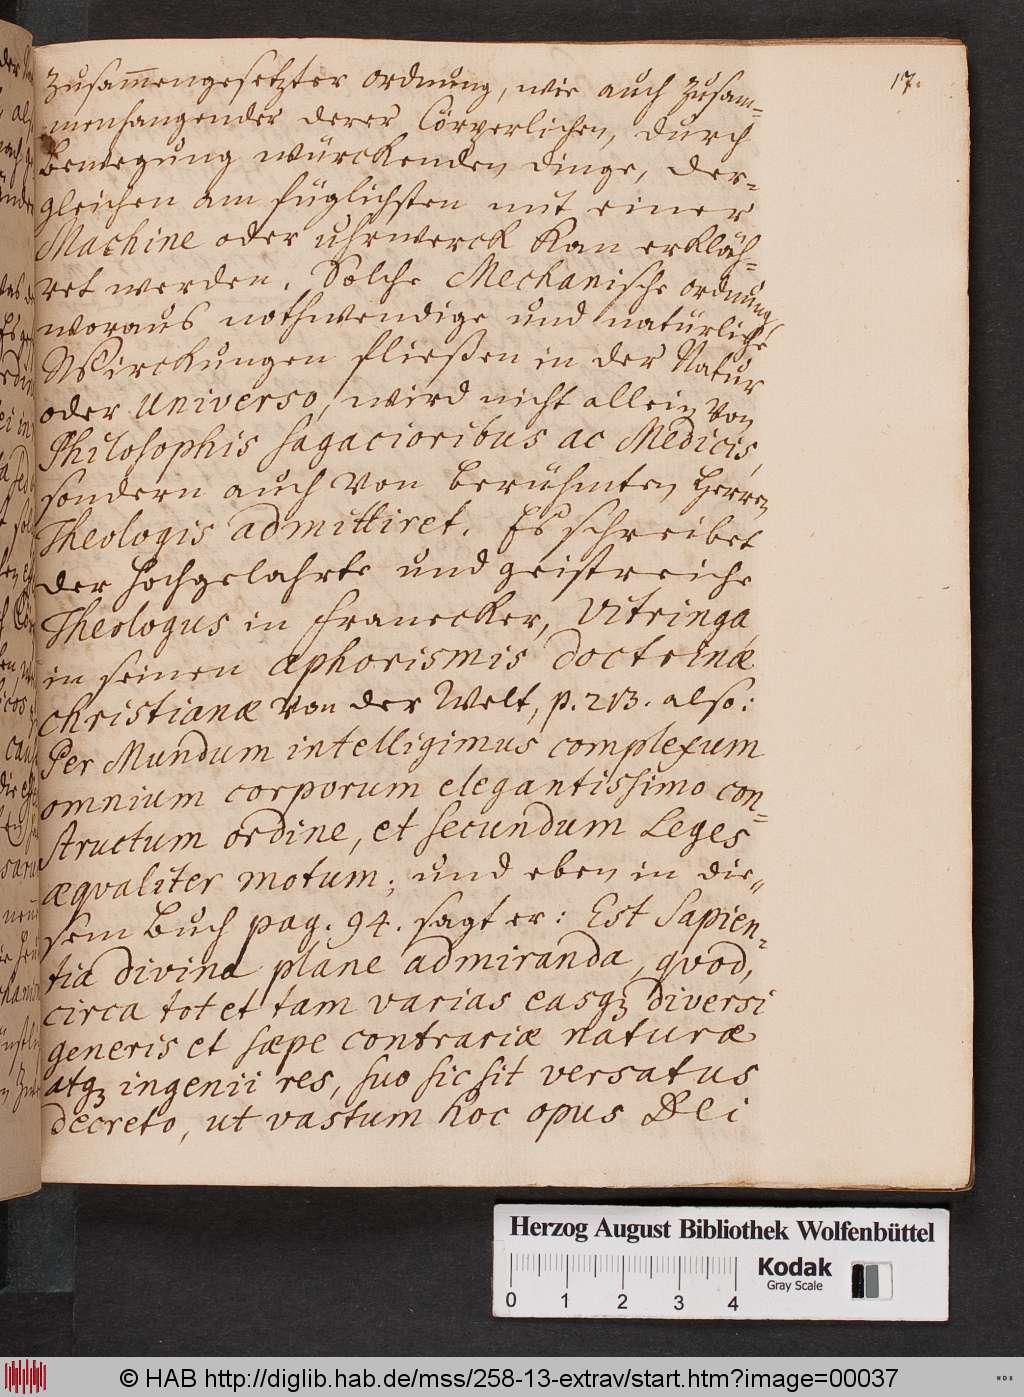 17.
zusam̄engesetzter ordnung, wie auch zusam=
menhangender derer Cörperlichen, durch
bewegung würckenden dinge, der=
gleichen am füglichsten mit einer
Machine oder uhrwerck kan erkläh=
ret werden. Solche Mechanische ordnung,
woraus nothwendige und natürliche
Wirckungen fließen in der Natur
oder Universo, wird nicht allein von
Philosophis sagacioribus ac Medicis,
sondern auch von berühmten Herren
Theologis admittiret. Es schreibet
der hochgelahrte und geistreiche
Theologus in franecker, Vitringa,
in seinen aphorismis doctrinæ
christianæ von der Welt, p. 213. also:
Per Mundum intelligimus complexum
omnium corporum elegantissimo con=
structum ordine, et secundum Leges
æqvaliter motum; und eben in die=
sem buch pag. 94. sagt er: Est Sapien=
tia divina plane admiranda, qvod,
circa tot et tam varias easqꝫ diversi
generis et sæpe contrariæ naturæ
atqꝫ ingenii res, suo sic sit versatus
decreto, ut vastum hoc opus Dei
Herzog August Bibliothek Wolfenbüttel
0 1 2 3 4
Kodak
Gray Scale
© HAB http://diglib.hab.de/mss/258-13-extrav/start.htm?image=00037